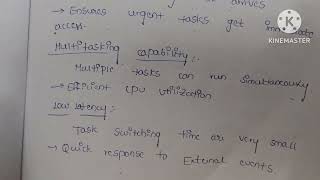 arrives
→ Ensures urgent tasks get immediate
access.
Multitasking capability:
Multiple tasks can run simultaneously
→ Efficient CPU utilization
Low latency:
Task switching time are very small
→ Quick response to External events.
KINEMASTER